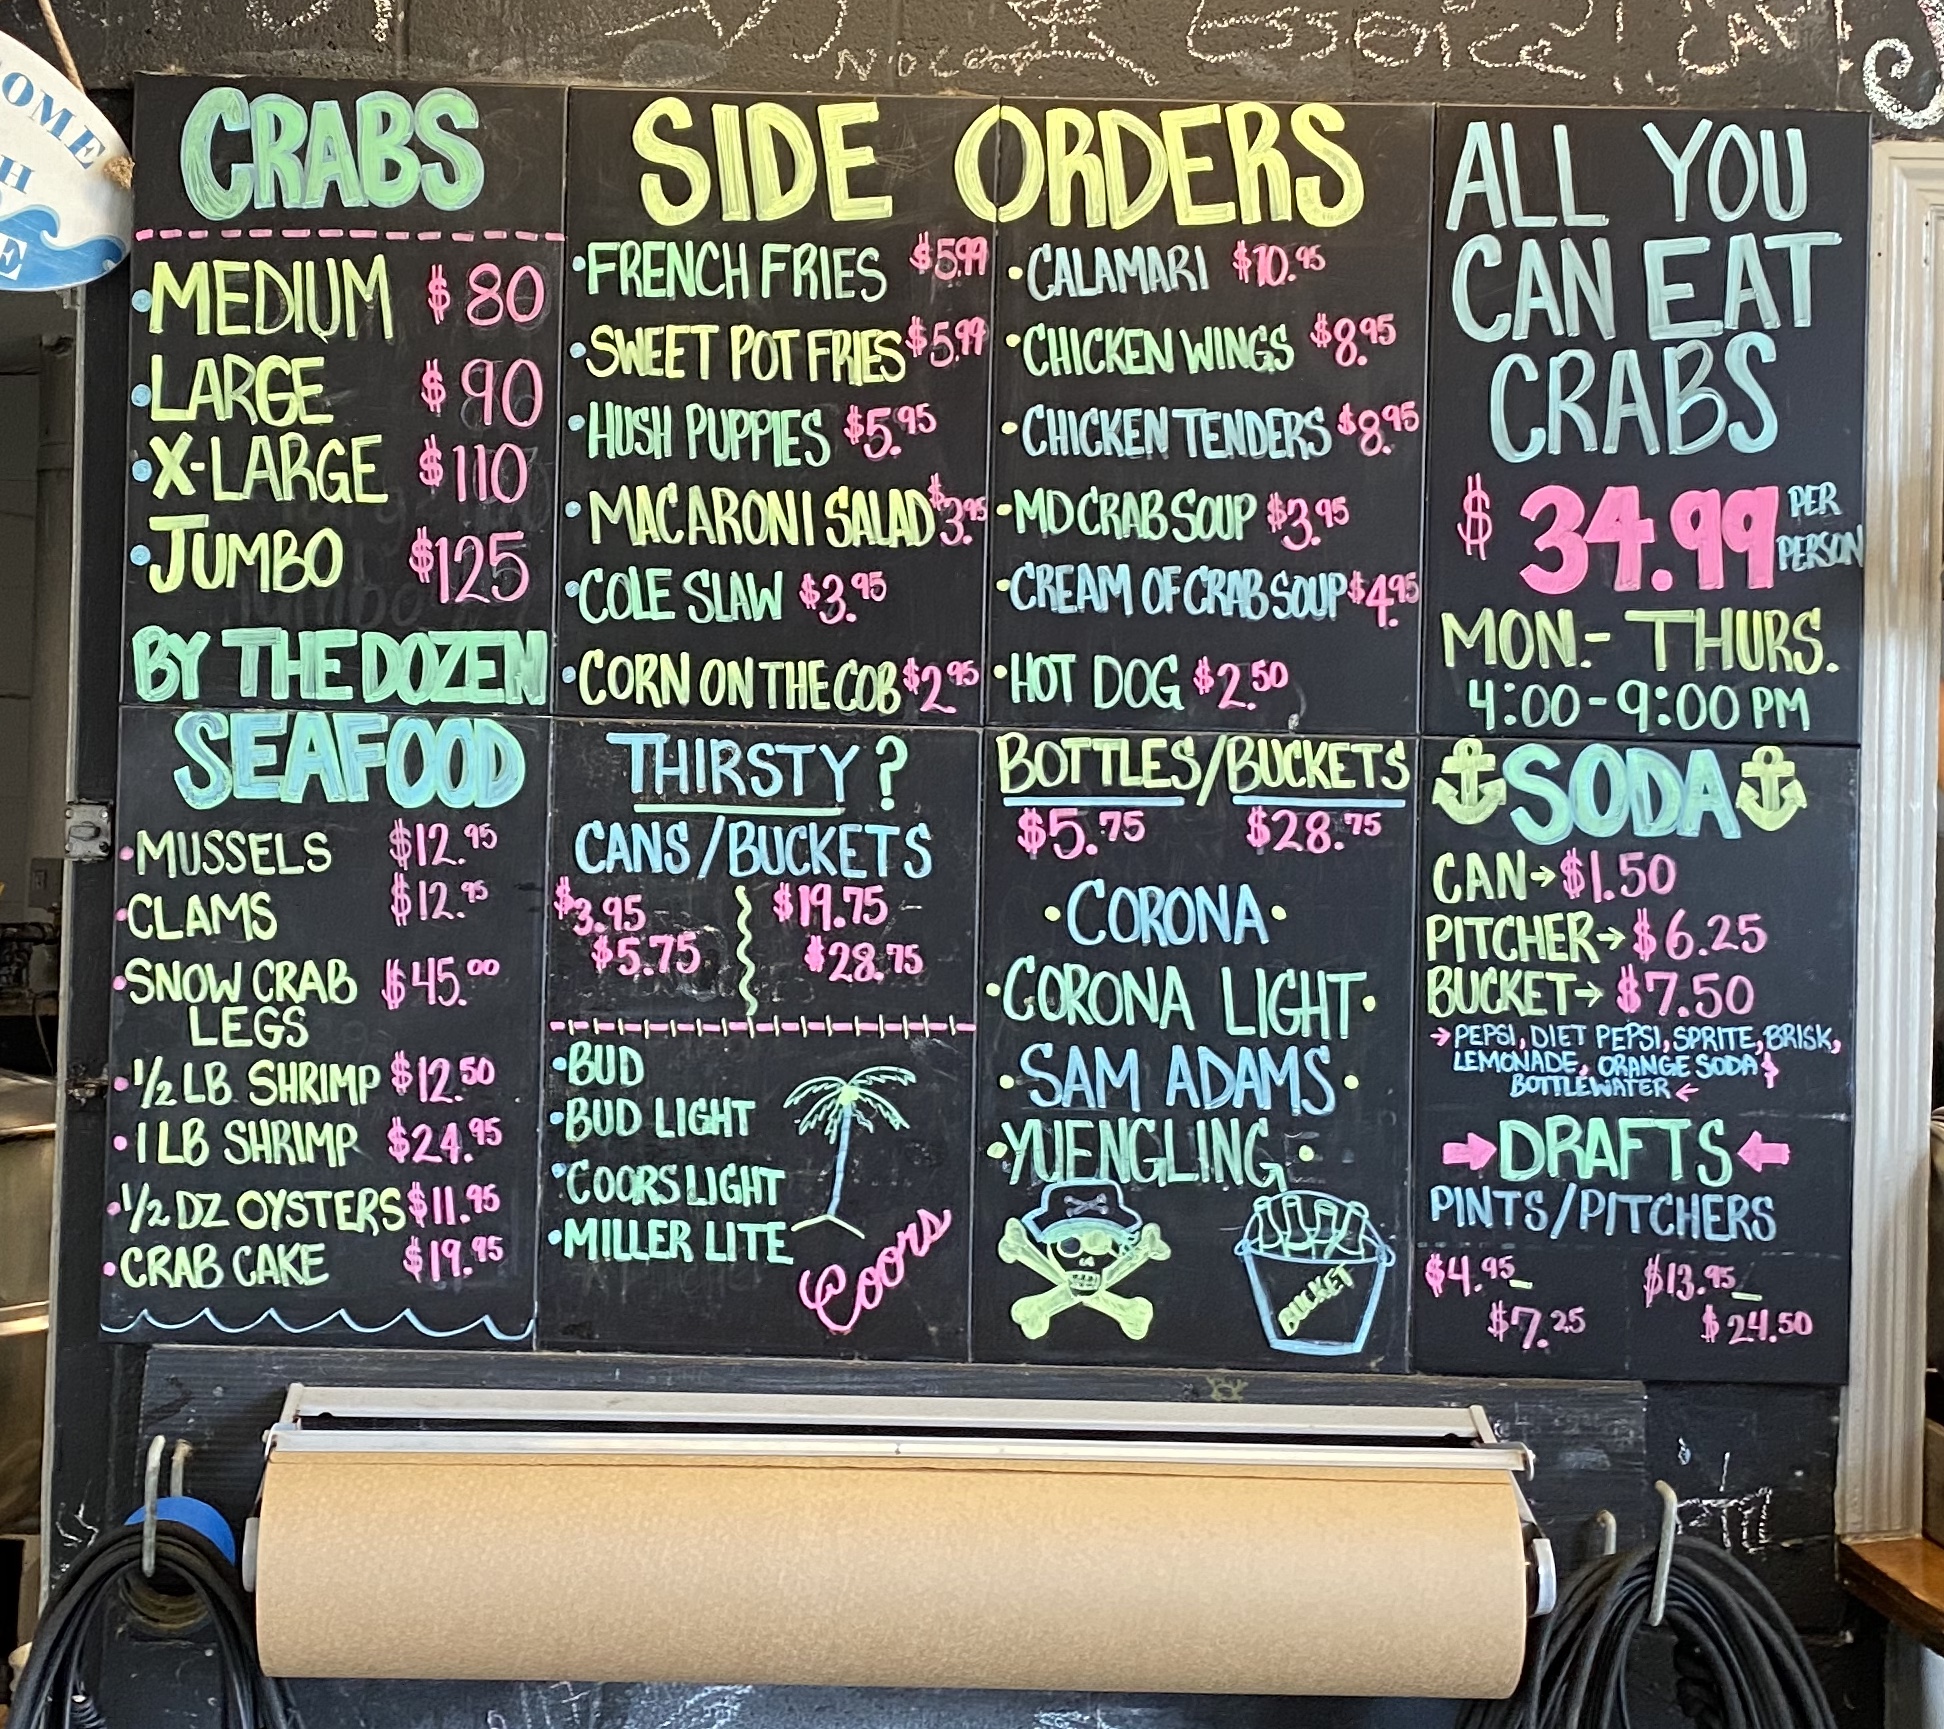 OME
H
E
NO Cap
Essence!
CRABS
• MEDIUM $80
• LARGE $90
• X-LARGE $110
• JUMBO $125
BY THE DOZEN
SIDE ORDERS
• FRENCH FRIES $5.99
• SWEET POT FRIES $5.99
• HUSH PUPPIES $5.95
• MACARONI SALAD $3.95
• COLE SLAW $3.95
• CORN ON THE COB $2.95
• CALAMARI $10.95
• CHICKEN WINGS $8.95
• CHICKEN TENDERS $8.95
• MD CRAB SOUP $3.95
• CREAM OF CRAB SOUP $4.95
• HOT DOG $2.50
ALL YOU
CAN EAT
CRABS
$34.99 PER
PERSON
MON.- THURS.
4:00-9:00 PM
SEAFOOD
• MUSSELS $12.95
• CLAMS $12.95
• SNOW CRAB $45.00
LEGS
• 1/2 LB SHRIMP $12.50
• 1 LB SHRIMP $24.95
• 1/2 DZ OYSTERS $11.95
• CRAB CAKE $19.95
THIRSTY?
CANS/BUCKETS
$3.95 $19.75-
$5.75 $28.75
• BUD
• BUD LIGHT
• COORS LIGHT
• MILLER LITE
Coors
BOTTLES/BUCKETS
$5.75 $28.75
• CORONA •
• CORONA LIGHT •
• SAM ADAMS •
• YUENGLING •
BUCKET
SODA
CAN→$1.50
PITCHER→$6.25
BUCKET→$7.50
→PEPSI, DIET PEPSI, SPRITE, BRISK,
LEMONADE, ORANGE SODA &
BOTTLEWATER←
→DRAFTS←
PINTS/PITCHERS
$4.95- $13.95-
$7.25 $24.50